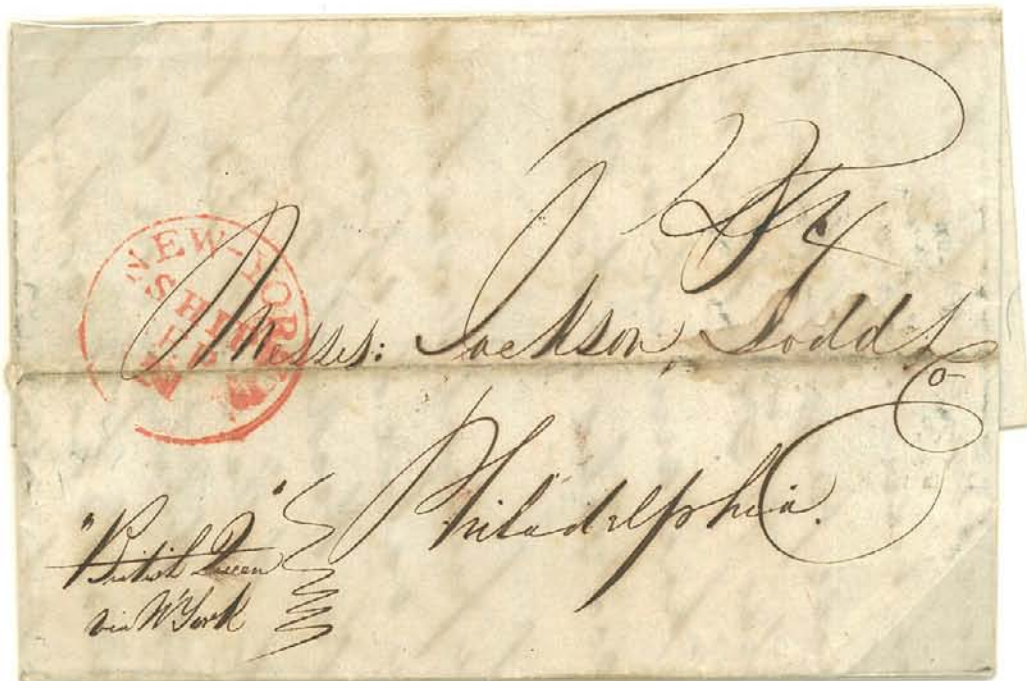 NEW-YORK
SHIP
Messrs: Jackson, Todd &
Co
Philadelphia.
"British Queen"
via N York